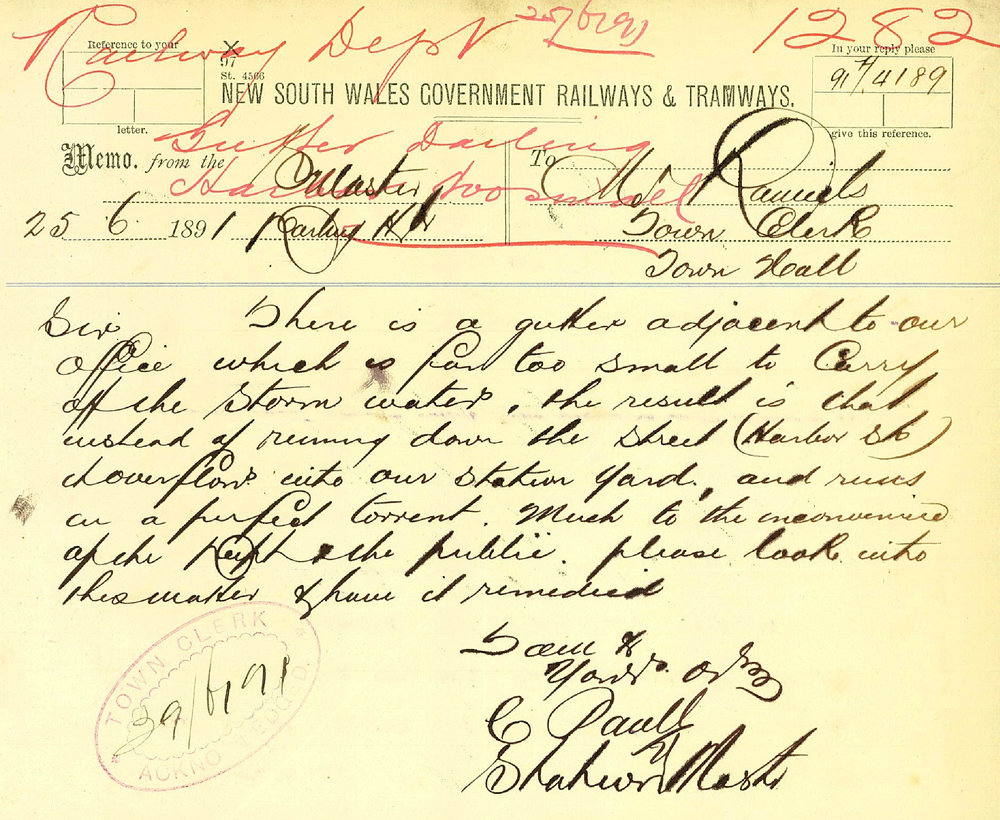 Railway Dept 25/6/91 1282
Reference to your
X
97
St. 4566
In your reply please
91/4189
NEW SOUTH WALES GOVERNMENT RAILWAYS & TRAMWAYS.
letter.
give this reference.
Gutter Darling
Memo. from the Master To Mr Daniels
Harbour
25 6 1891 Darling Hbr Town Clerk
Town Hall
Sir There is a gutter adjacent to our
office which is far too small to Carry
off the storm water, the result is that
instead of running down the street (Harbor St)
it overflows into our station yard, and runs
in a perfect torrent. Much to the inconvenience
of the Dept & the public. please look into
this matter & have it remedied
I am &
Yours
C Paull
Station Master
TOWN CLERK
29/6/91
ACKNOWLEDGED